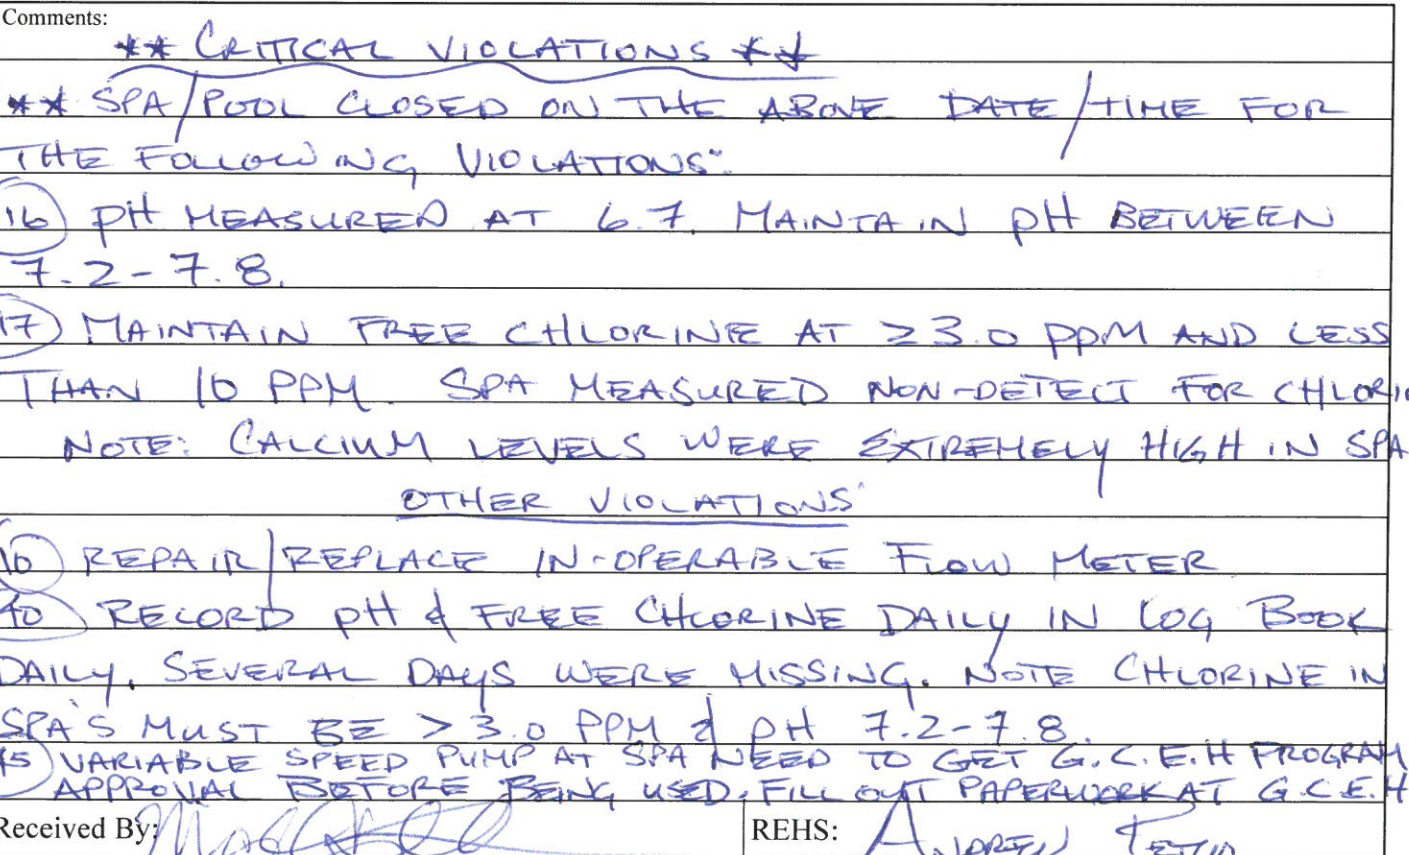 Comments:
** CRITICAL VIOLATIONS **
** SPA/POOL CLOSED ON THE ABOVE DATE/TIME FOR
THE FOLLOWING VIOLATIONS:
16) pH MEASURED AT 6.7. MAINTAIN pH BETWEEN
7.2-7.8.
17) MAINTAIN FREE CHLORINE AT ≥3.0 PPM AND LESS
THAN 10 PPM. SPA MEASURED NON-DETECT FOR CHLORI
NOTE: CALCIUM LEVELS WERE EXTREMELY HIGH IN SPA
OTHER VIOLATIONS
REPAIR/REPLACE IN-OPERABLE FLOW METER
RECORD pH & FREE CHLORINE DAILY IN LOG BOOK
DAILY. SEVERAL DAYS WERE MISSING. NOTE CHLORINE IN
SPA'S MUST BE > 3.0 PPM & pH 7.2-7.8.
VARIABLE SPEED PUMP AT SPA NEED TO GET G.C.E.H PROGRAM
APPROVAL BEFORE BEING USED. FILL OUT PAPERWORK AT G.C.E.H
Received By:
REHS: